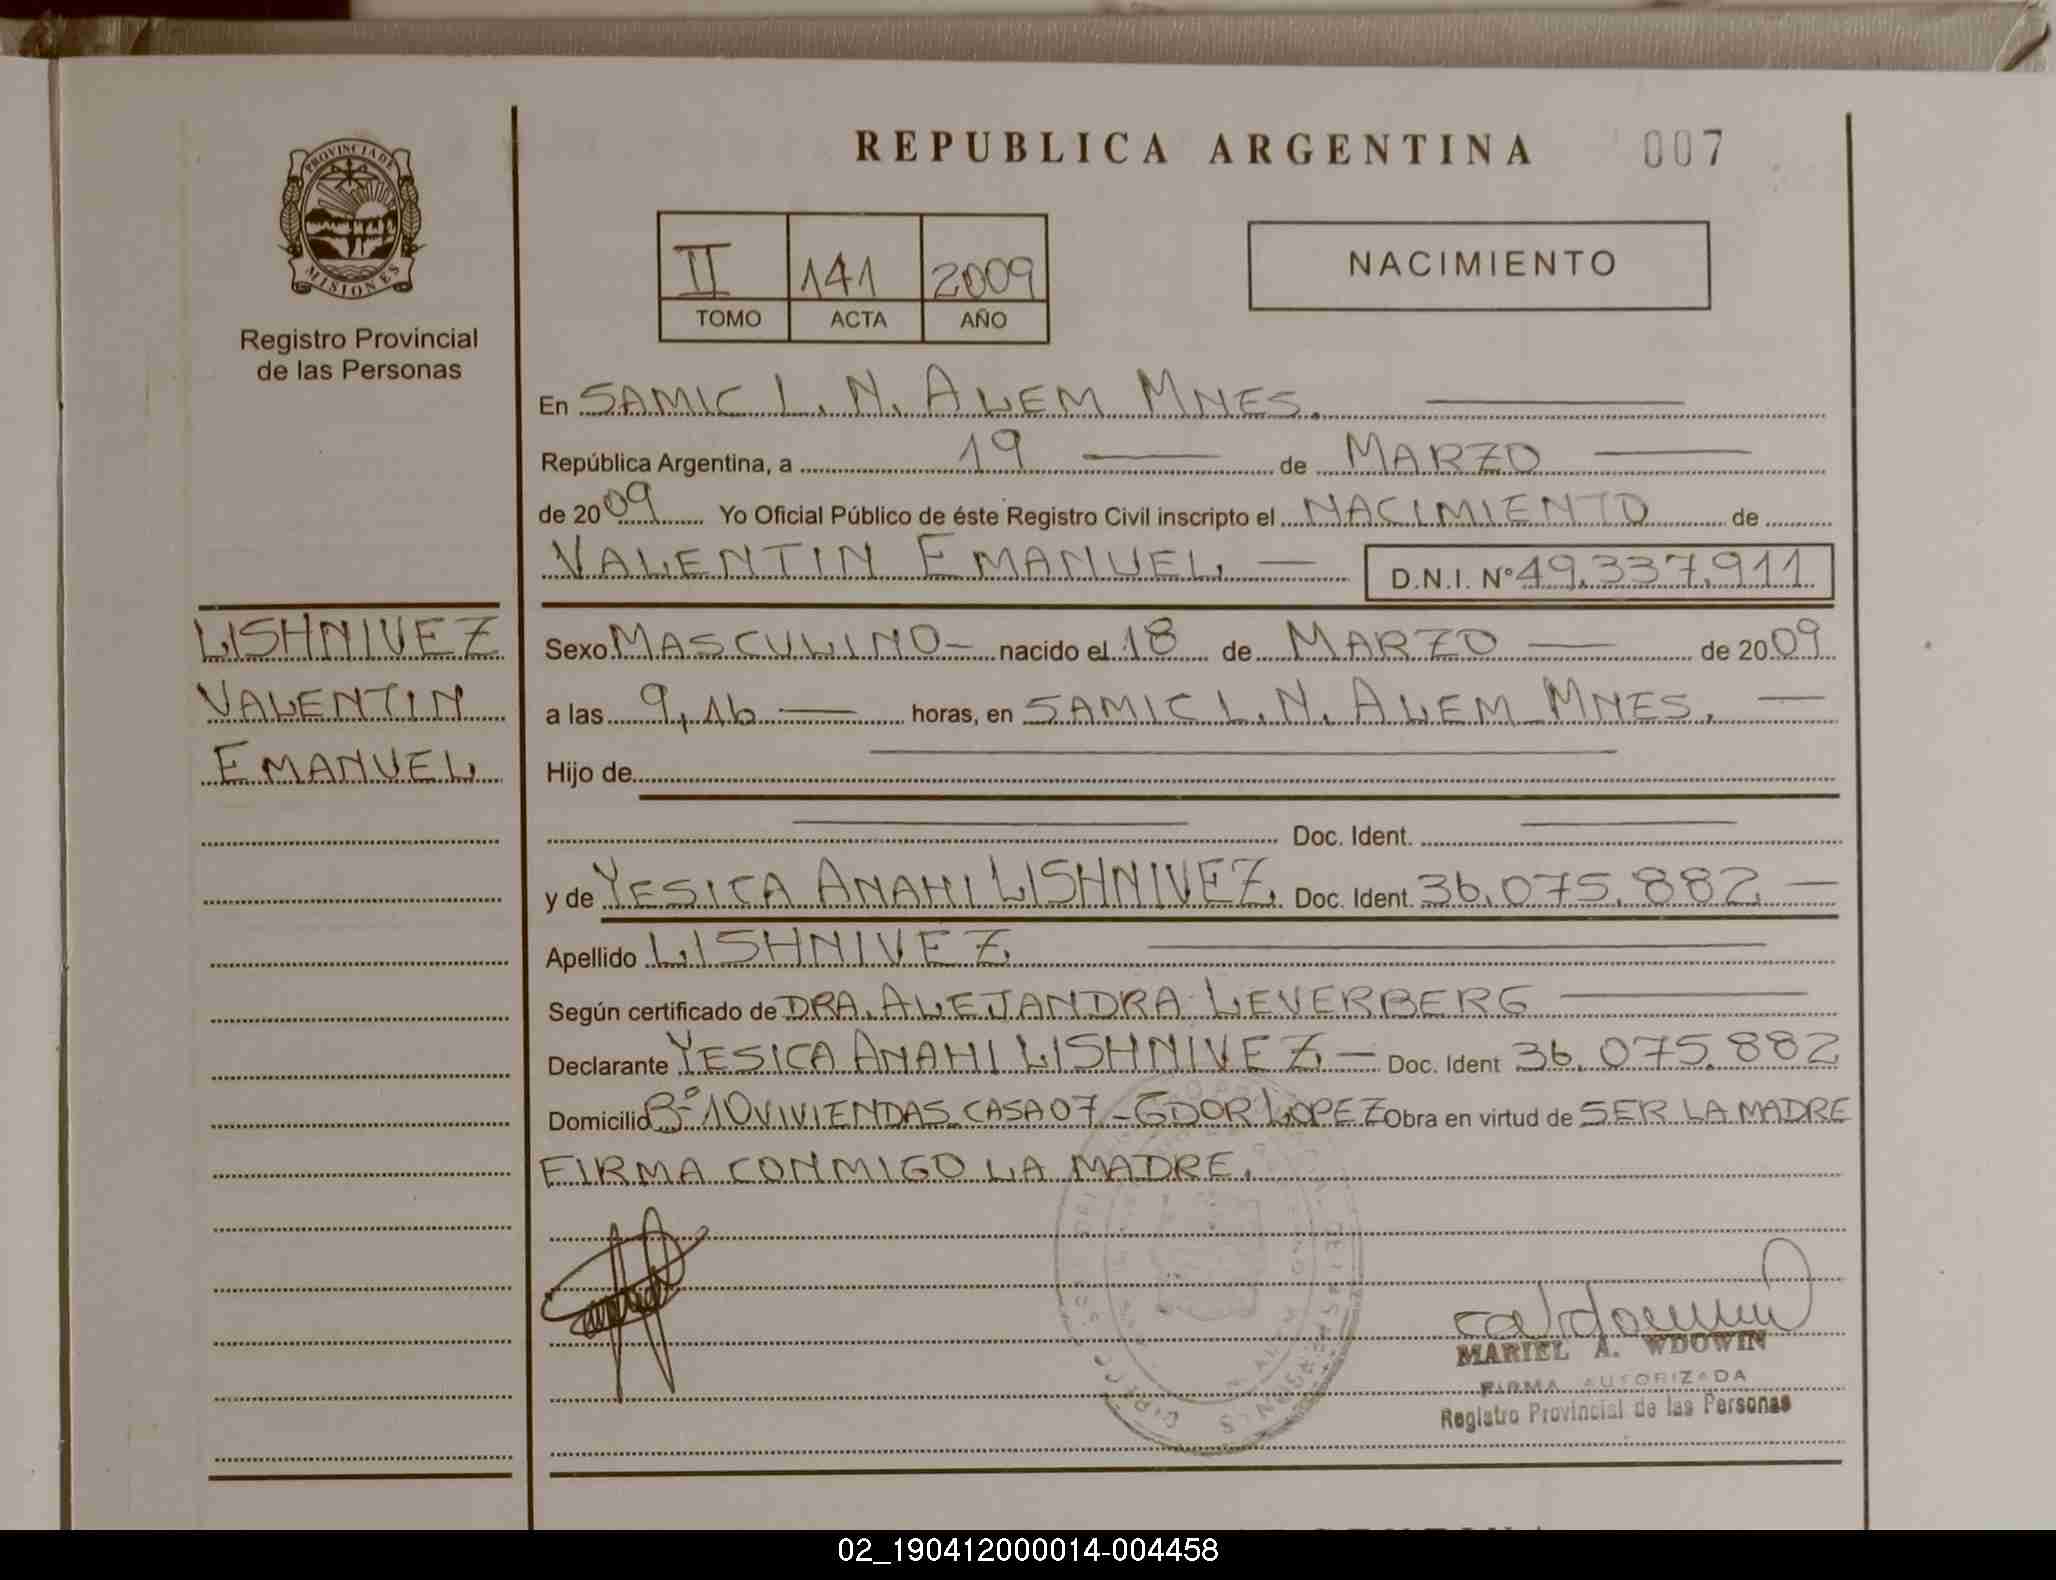 REPUBLICA ARGENTINA
007
PROVINCIA DE
MISIONES
Registro Provincial
de las Personas
II 141 2009
TOMO ACTA AÑO
NACIMIENTO
En SAMIC L. N. ALEM MNES.
República Argentina, a 19 de MARZO
de 2009 Yo Oficial Público de éste Registro Civil inscripto el NACIMIENTO de
VALENTIN EMANUEL D.N.I. N° 49.337.911
LISHNIVEZ
VALENTIN
EMANUEL
Sexo MASCULINO nacido el 18 de MARZO de 2009
a las 9,16 horas, en SAMIC L. N. ALEM MNES.
Hijo de
Doc. Ident.
y de YESICA ANAHI LISHNIVEZ. Doc. Ident. 36.075.882
Apellido LISHNIVEZ
Según certificado de DRA. ALEJANDRA LEVERBERG
Declarante YESICA ANAHI LISHNIVEZ Doc. Ident 36.075.882
Domicilio B° 10 VIVIENDAS CASA 07 - GDOR LOPEZ Obra en virtud de SER LA MADRE
FIRMA CONMIGO LA MADRE.
MARIEL A. WDOWIN
FIRMA AUTORIZADA
Registro Provincial de las Personas
02_190412000014-004458